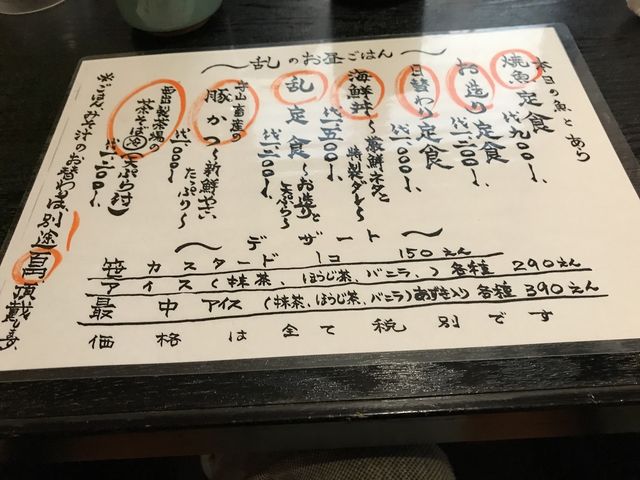 〜乱のお昼ごはん〜
本日の魚とあら
焼魚定食
代、九〇〇、
お造り定食
代、一二〇〇、
日替わり定食
代、一二〇〇、
海鮮丼〜厳鮮ネタと特製ダレ〜
代、一五〇〇、
乱定食〜お造りと天ぷら〜
代、一二〇〇、
寺山畜産の
豚かつ〜新鮮やさいたっぷり〜
代、一〇〇〇、
茶そば
（天ぷら付）
代、一二〇〇、
※ごはん、みそ汁のお替わりは別途百円頂戴
〜デザート〜
笹カスタード 一コ 150えん
アイス（抹茶、ほうじ茶、バニラ、）各種 290えん
最中アイス（抹茶、ほうじ茶、バニラ）あずき入り 各種 390えん
価格は全て税別です